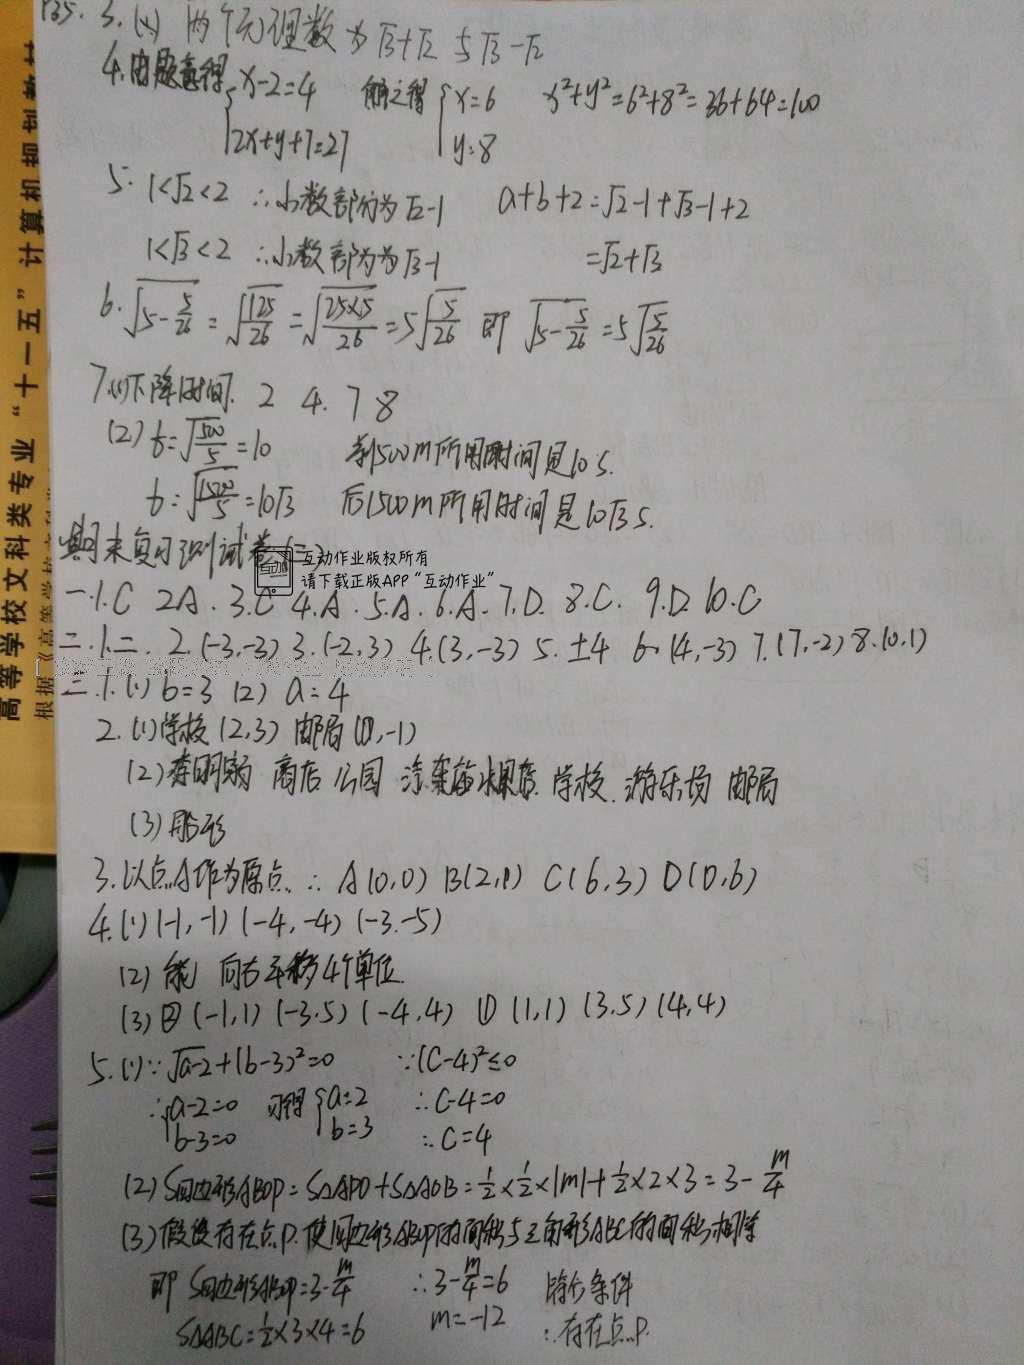 P35. 3. (4) 两个无理数为√3+√2 与√3-√2
4. 由题意得 { x-2=4 解之得 { x=6 x²+y²=6²+8²=36+64=100
2x+y+7=27 y=8
5. 1<√2<2 ∴小数部分为√2-1 a+b+2=√2-1+√3-1+2
1<√3<2 ∴小数部分为√3-1 =√2+√3
6. √(5-5/26) = √(125/26) = √(25×5/26) = 5√(5/26) 即 √(5-5/26) = 5√(5/26)
7.(1)下降时间. 2 4. 7 8
(2) t=√(500/5)=10 前500m所用时间是10s.
t=√(1500/5)=10√3 后1500m所用时间是10√3 s.
期末复习测试卷(二)
互动作业版权所有
请下载正版APP“互动作业”
一.1.C 2A. 3.C 4.A. 5.A. 6.A. 7.D. 8.C. 9.D 10.C
二.1.二. 2.(-3,-3) 3.(-2,3) 4.(3,-3) 5.±4 6.(4,-3) 7.(7,-2) 8.(0,1)
三.1.(1) b=3 (2) a=4
2.(1)学校(2,3) 邮局(0,-1)
(2)李明家 商店 公园 汽车站 水果店 学校 游乐场 邮局
(3)船形
3.以点A作为原点 ∴ A(0,0) B(2,1) C(6,3) D(0,6)
4.(1)(-1,-1) (-4,-4) (-3.-5)
(2)能 向右平移4个单位
(3)②(-1,1) (-3.5) (-4,4) ①(1,1) (3,5) (4,4)
5.(1)∵√a-2+(b-3)²=0 ∵(C-4)²≤0
∴{ a-2=0 可得 { a=2 ∴C-4=0
b-3=0 b=3 ∴C=4
(2) S四边形ABOP=S△APO+S△AOB=1/2×1/2×|m|+1/2×2×3=3-m/4
(3)假设存在点P.使四边形ABOP的面积与三角形ABC的面积相等
即 S四边形ABOP=3-m/4 ∴3-m/4=6 符合条件
S△ABC=1/2×3×4=6 m=-12 ∴存在点P.
高等学校文科类专业“十一五”计算机规划教材
根据《高等学校